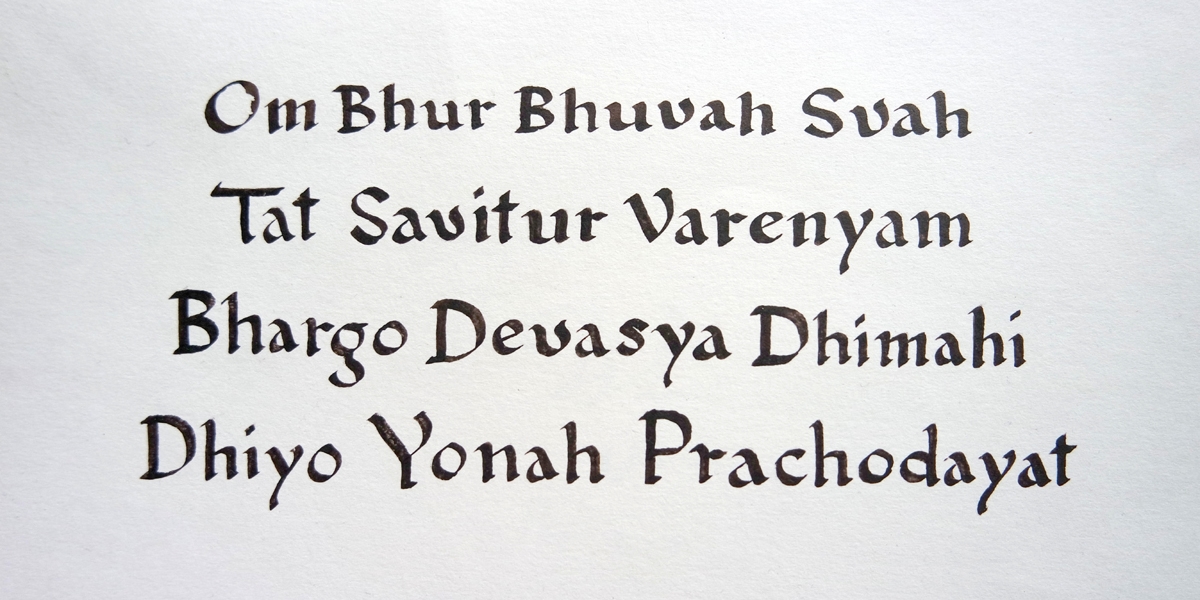 Om Bhur Bhuvah Svah
Tat Savitur Varenyam
Bhargo Devasya Dhimahi
Dhiyo Yonah Prachodayat